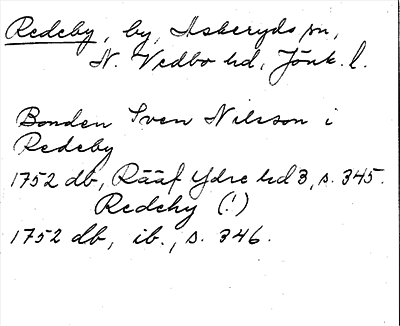 Redeby, by, Asberyds sn,
N. Vedbo hd, Jönk. l.
Bonden Sven Nilsson i
Redeby
1752 db, Rääf Ydre hd 3, s. 345.
Redehy (!)
1752 db, ib., s. 346.